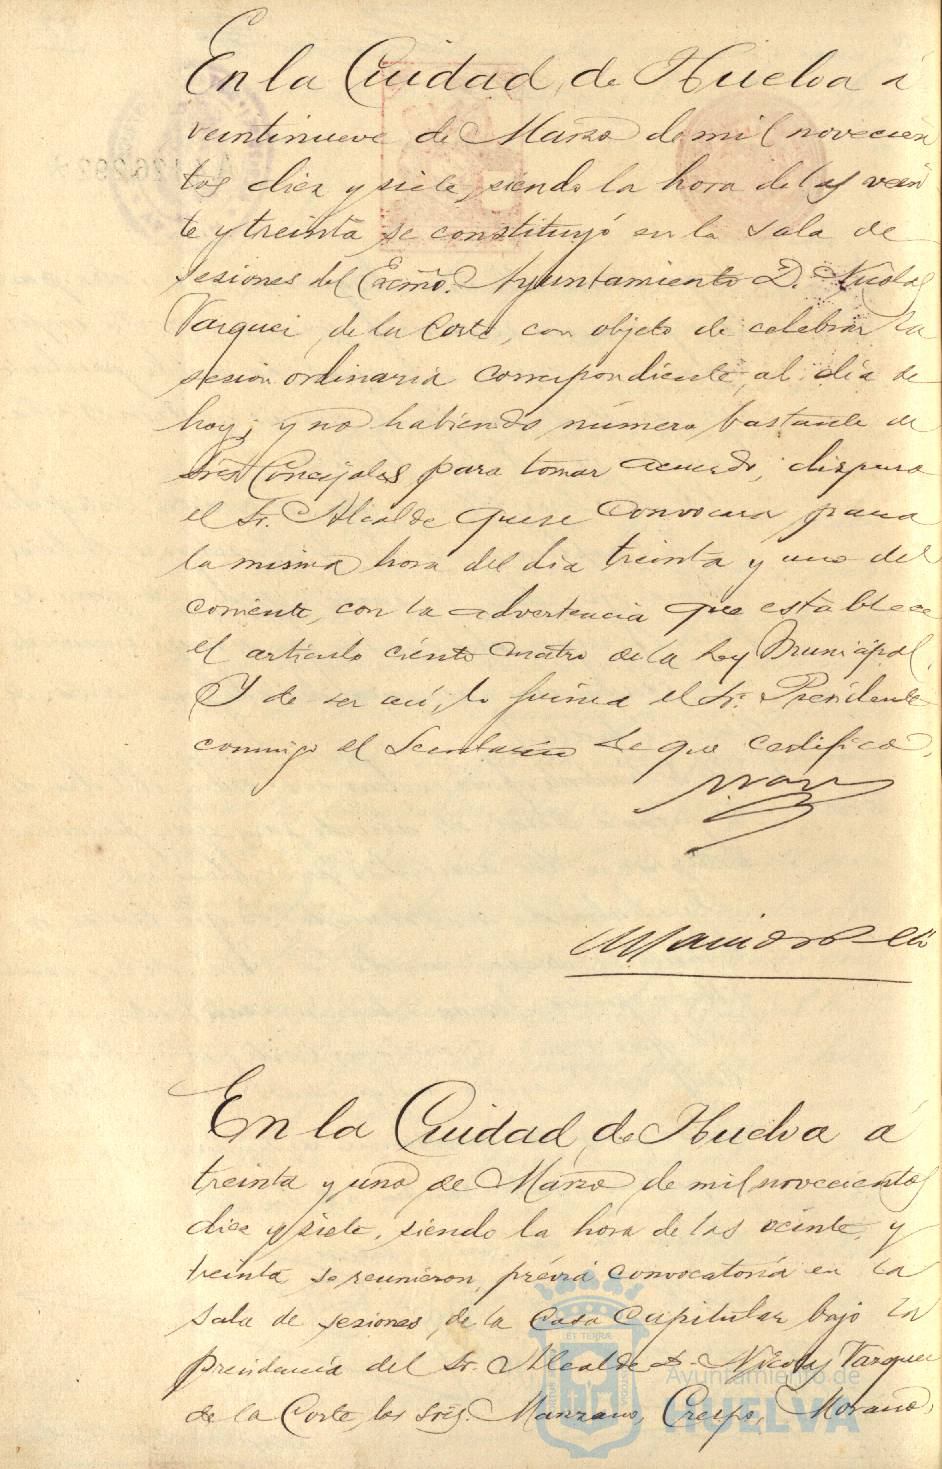 En la Ciudad de Huelva á
veintinueve de Marzo de mil novecien
tos diez y siete, siendo la hora de las vein
te y treinta se constituyó en la sala de
sesiones del Excmo. Ayuntamiento D. Nicolas
Vazquez de la Corte, con objeto de celebrar la
sesion ordinaria correspondiente, al dia de
hoy; y no habiendo número bastante de
Sres Concejales para tomar acuerdo, dispuso
el Sr. Alcalde que se convocara para
la misma hora del dia treinta y uno del
corriente, con la advertencia que establece
el articulo ciento cuatro de la Ley Municipal.
Y de ser asi, lo firma el Sr. Presidente
conmigo el Secretario de que certifico.
En la Ciudad de Huelva á
treinta y uno de Marzo de mil novecientos
diez y siete, siendo la hora de las veinte, y
treinta se reunieron, prévia convocatoria en la
sala de sesiones, de la Casa Capitular bajo la
presidencia del Sr. Alcalde D. Nicolas Vazquez
de la Corte, los Sres. Manzano, Crespo, Morano,
ET TERRÆ
Ayuntamiento de
HUELVA